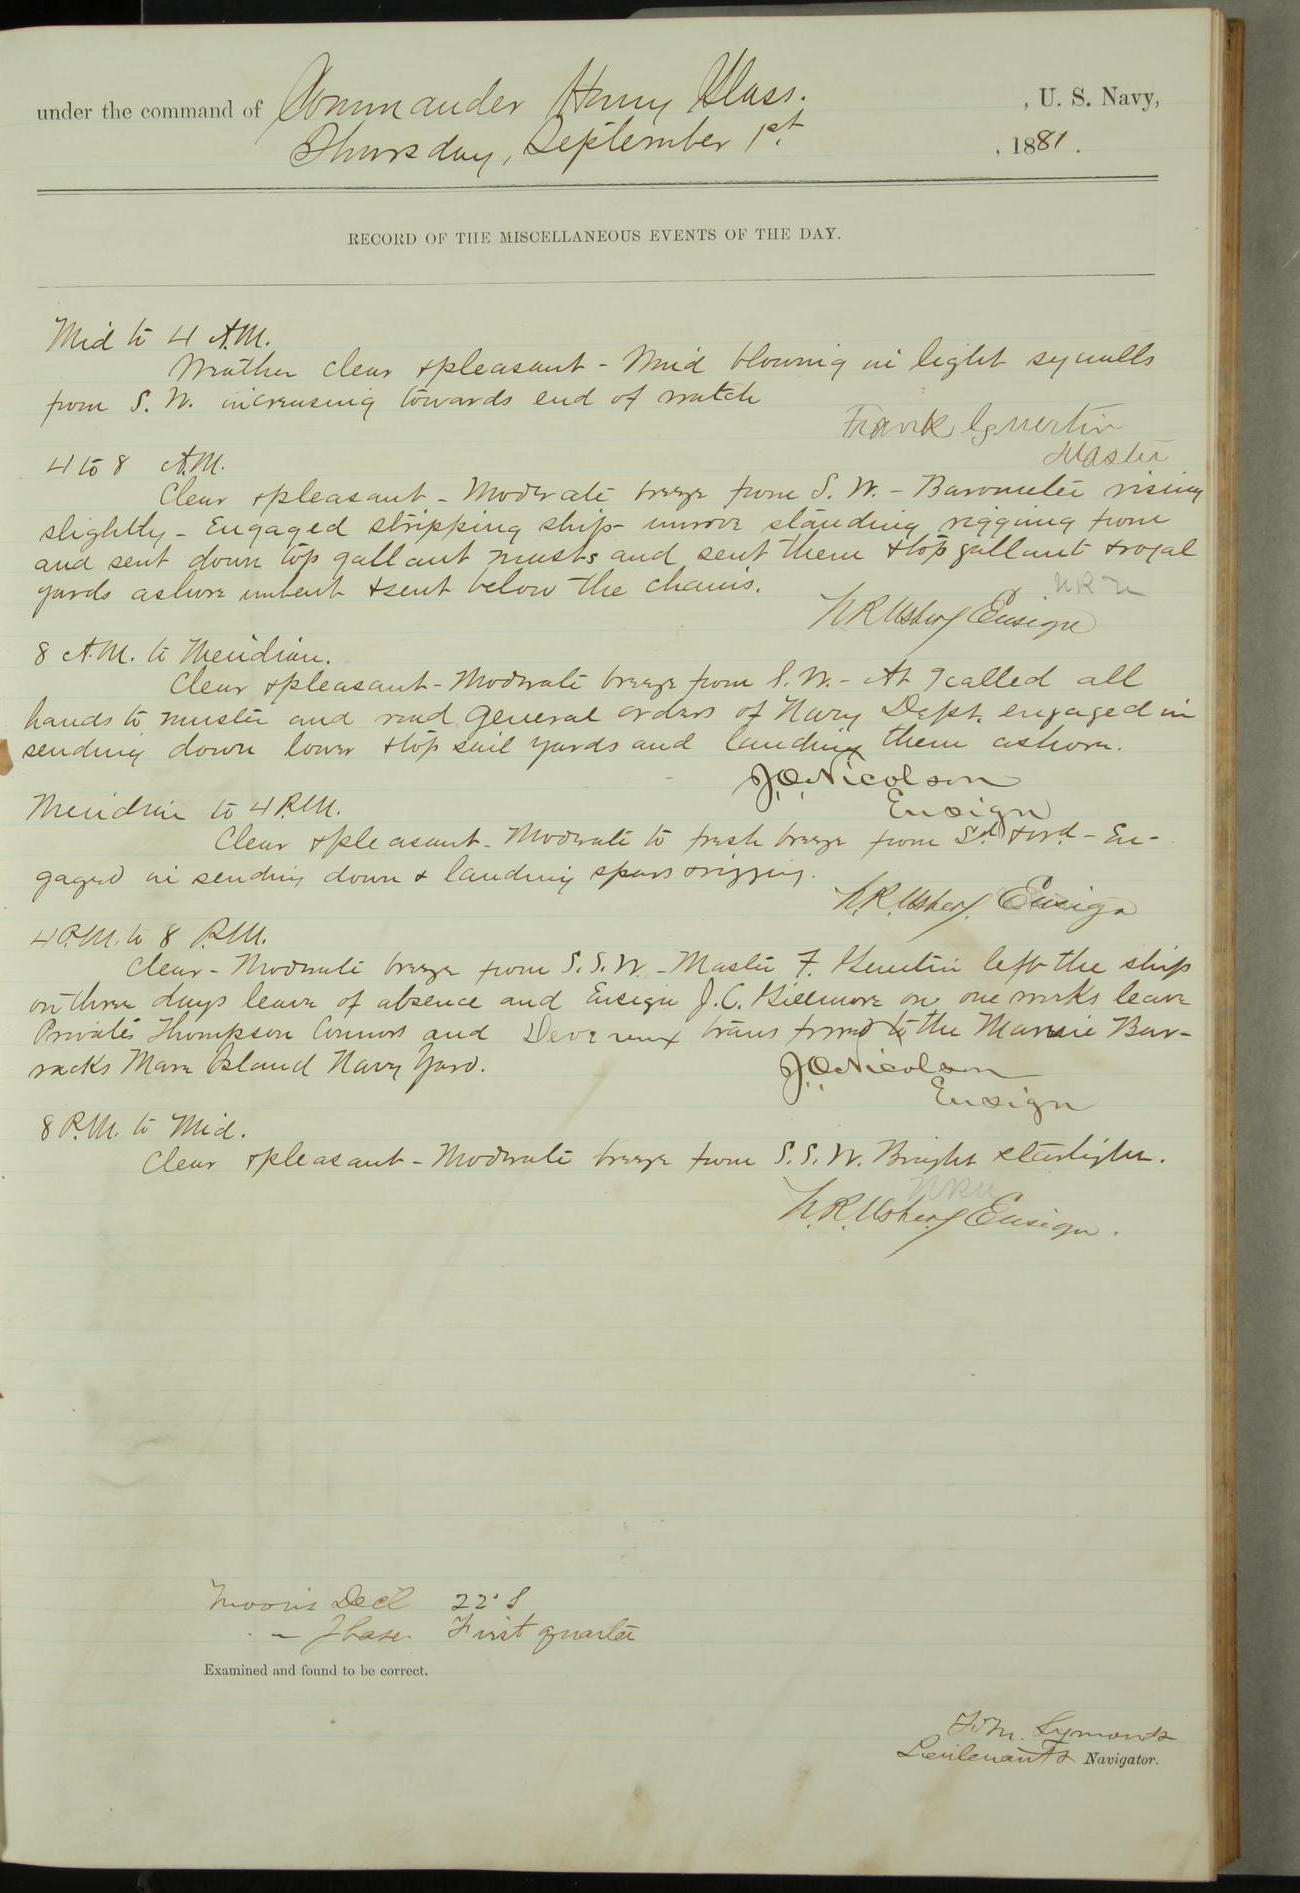 under the command of Commander Henry Glass. , U. S. Navy,
Thursday, September 1st. , 1881.
RECORD OF THE MISCELLANEOUS EVENTS OF THE DAY.
Mid to 4 A.M.
Weather clear & pleasant - Wind blowing in light squalls
from S. W. increasing towards end of watch
Frank Guertin
Master
4 to 8 A.M.
Clear & pleasant - Moderate breeze from S. W. - Barometer rising
slightly - Engaged stripping ship - unrove standing rigging from
and sent down top gallant masts and sent them & top gallant & royal
yards ashore unbent & sent below the chains.
N.R.U
N R Usher Ensign
8 A.M. to Meridian.
Clear & pleasant - Moderate breeze from S. W. - At 9 called all
hands to muster and read General orders of Navy Dept. engaged in
sending down lower & top sail yards and landing them ashore.
J.O. Nicolson
Ensign
Meridian to 4 P.M.
Clear & pleasant - Moderate to fresh breeze from Sd. & Wd. - En-
gaged in sending down & landing spars & rigging.
N.R. Usher, Ensign
4 P.M. to 8 P.M.
Clear - Moderate breeze from S.S.W. - Master F. Guertin left the ship
on three days leave of absence and Ensign J.C. Gillmore on one weeks leave
Privates Thompson Connors and Devereux transferred to the Marine Bar-
racks Mare Island Navy Yard.
J.O. Nicolson
Ensign
8 P.M. to Mid.
Clear & pleasant - Moderate breeze from S.S.W. Bright starlight.
N R U
N.R. Usher, Ensign.
Moon's Decl 22° S
" - Phase First quarter
Examined and found to be correct.
F.M. Symonds
Lieutenant & Navigator.